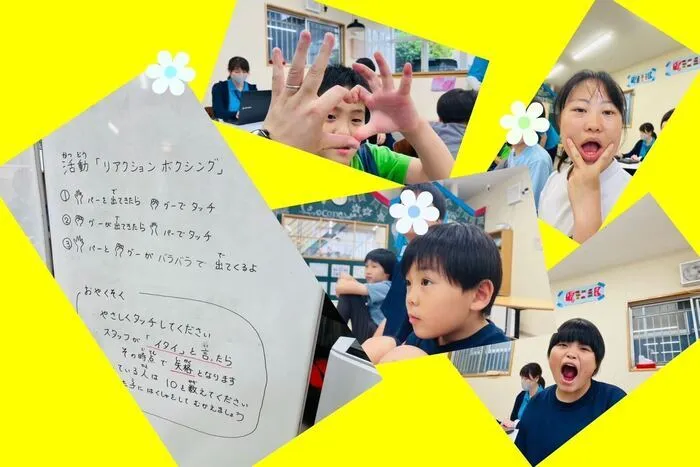 活動「リアクション ボクシング」
かつどう
① パーを出てきたら グーでタッチ
② グーが出てきたら パーでタッチ
③ パーと グーが バラバラで 出てくるよ
おやくそく
やさしくタッチしてください
スタッフが「イタイ」と言ったら
その時点で失格となります
ている人は 10と数えてください
た子にはくしゅをして むかえましょう